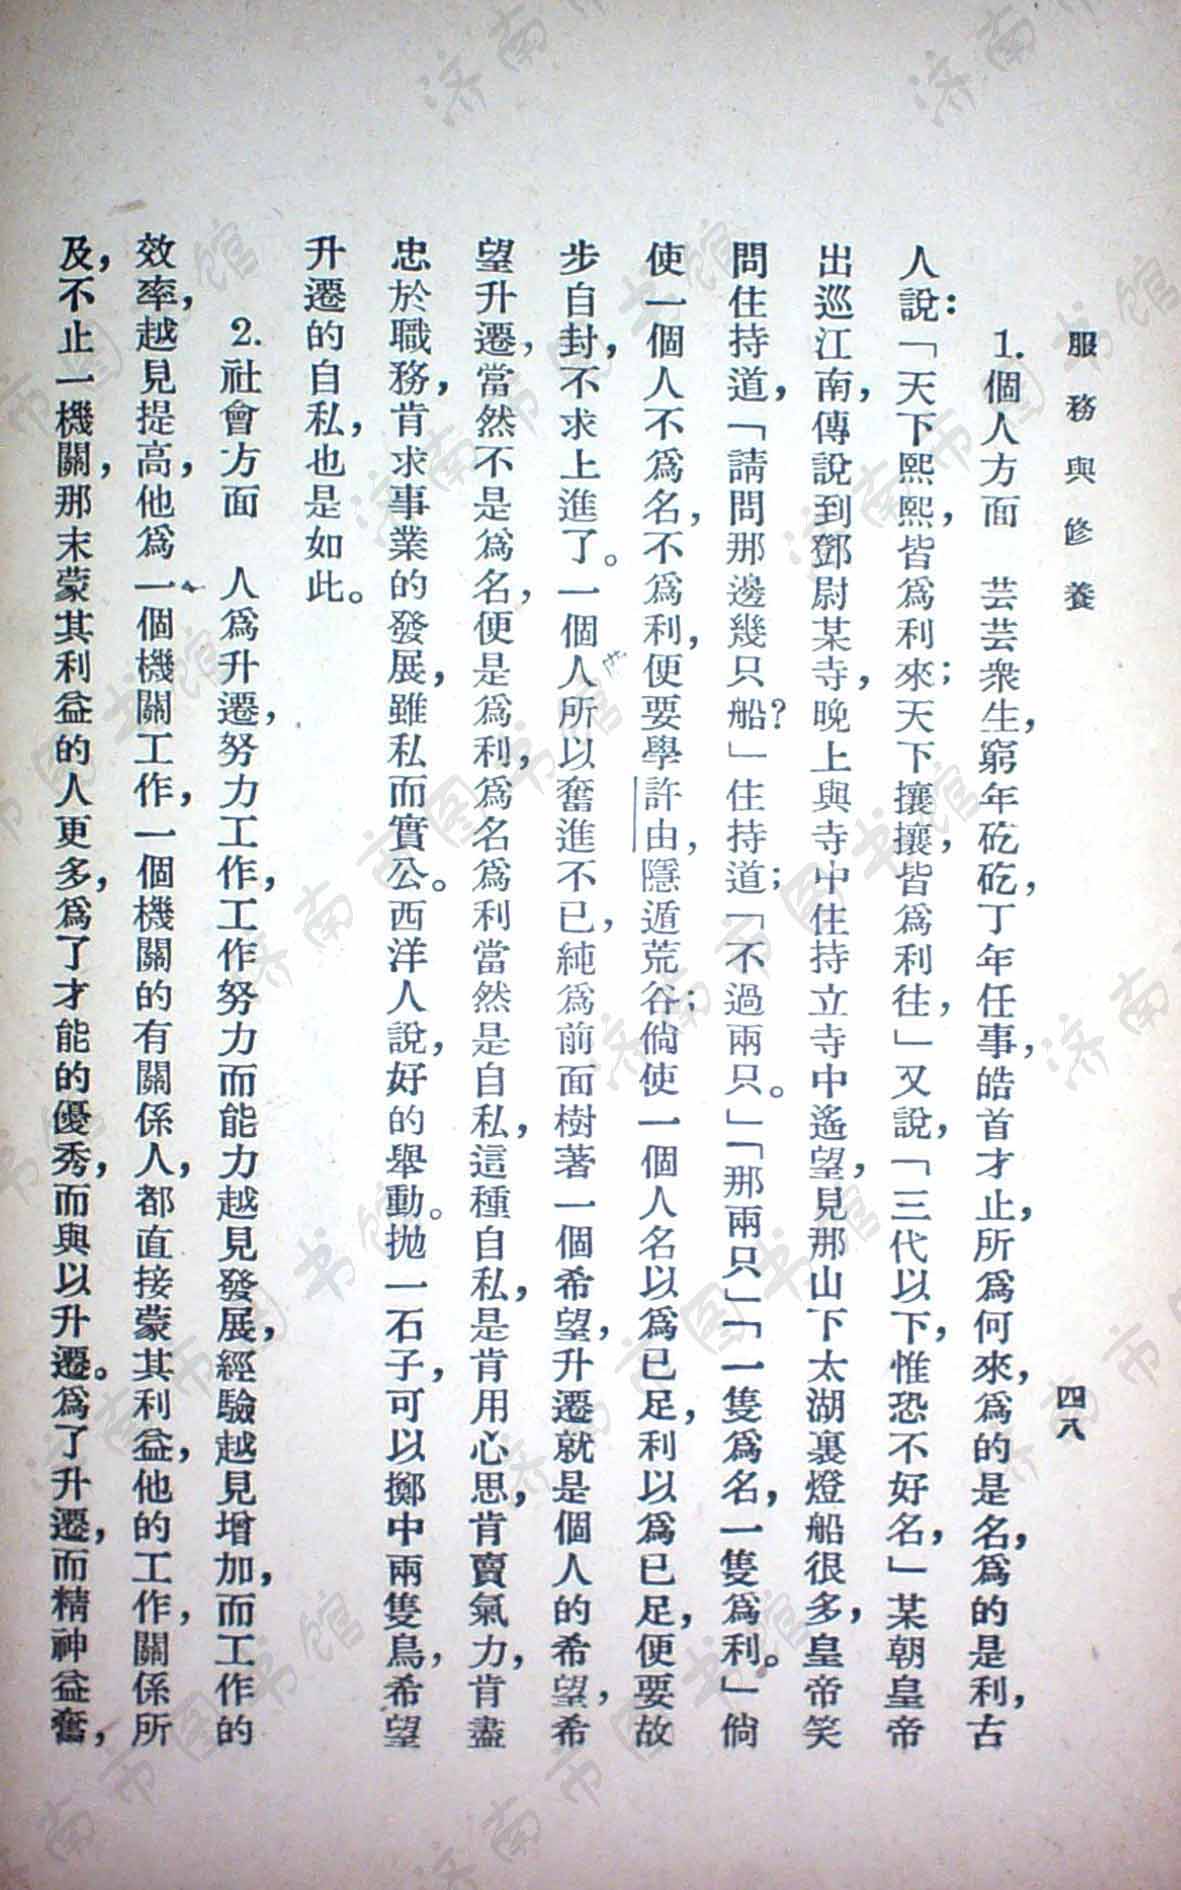 服務與修養
四八
1.個人方面　芸芸衆生，窮年矻矻，丁年任事，皓首才止，所爲何來，爲的是名，爲的是利，古
人說：「天下熙熙，皆爲利來；天下攘攘，皆爲利往，」又說，「三代以下，惟恐不好名，」某朝皇帝
出巡江南，傳說到鄧尉某寺，晚上與寺中住持立寺中遙望，見那山下太湖裏燈船很多，皇帝笑
問住持道，「請問那邊幾只船？」住持道；「不過兩只。」「那兩只」「一隻爲名，一隻爲利。」倘
使一個人不爲名，不爲利，便要學許由，隱遁荒谷；倘使一個人名以爲已足，利以爲已足，便要故
步自封，不求上進了。一個人所以奮進不已，純爲前面樹著一個希望，升遷就是個人的希望，希
望升遷，當然不是爲名，便是爲利，爲名爲利當然是自私，這種自私，是肯用心思，肯賣氣力，肯盡
忠於職務，肯求事業的發展，雖私而實公。西洋人說，好的舉動。抛一石子，可以擲中兩隻鳥，希望
升遷的自私，也是如此。
2.社會方面　人爲升遷，努力工作，工作努力而能力越見發展，經驗越見增加，而工作的
效率，越見提高，他爲一個機關工作，一個機關的有關係人，都直接蒙其利益，他的工作，關係所
及，不止一機關，那末蒙其利益的人更多，爲了才能的優秀，而與以升遷。爲了升遷，而精神益奮，
济南市图书馆